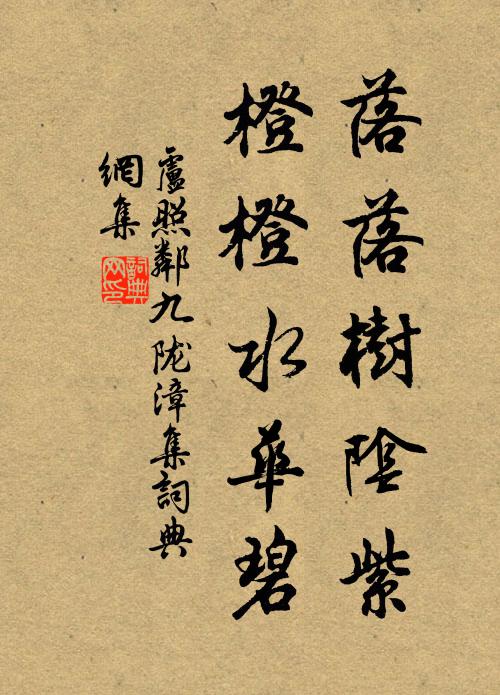 落落樹陰紫
橙橙水華碧
盧照鄰九陇漳集詞典
網集
詞典
网印